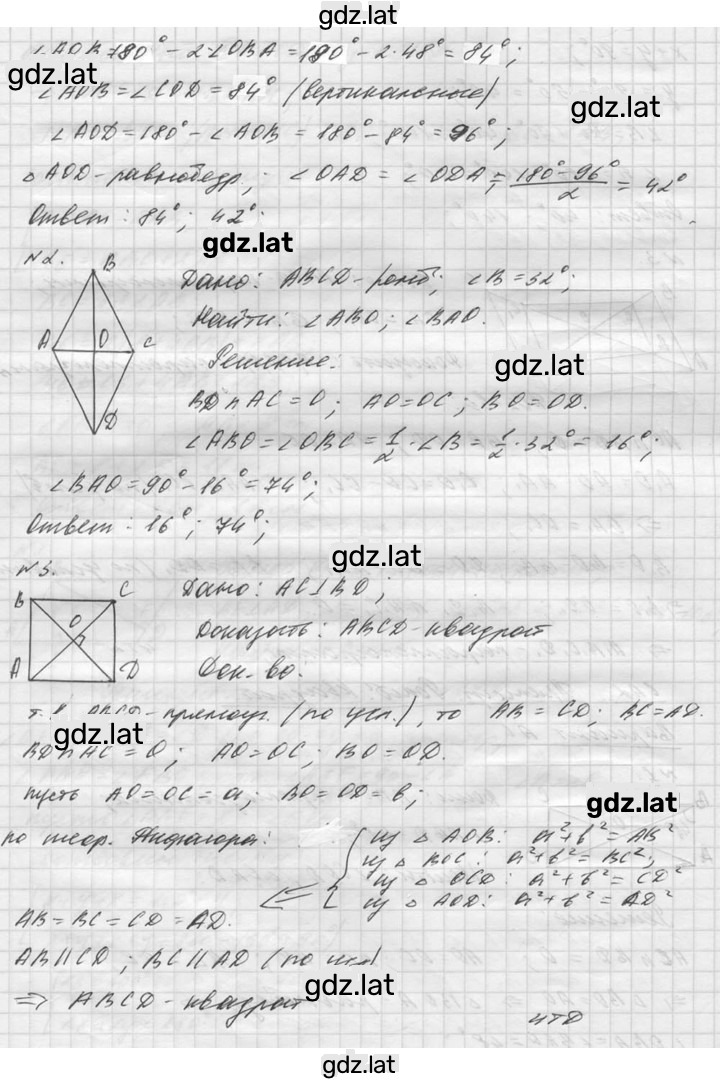 gdz.lat
∠AOB=180° - 2·∠OBA = 180° - 2·48° = 84°;
gdz.lat
∠AOB = ∠COD = 84° (вертикальные)
gdz.lat
∠AOD = 180° - ∠AOB = 180° - 84° = 96°;
△AOD - равнобедр; ∠OAD = ∠ODA = (180° - 96°)/2 = 42°
Ответ: 84°; 42°.
gdz.lat
N2.
B
A O C
D
Дано: ABCD - ромб; ∠B = 32°;
Найти: ∠ABO; ∠BAO.
Решение:
gdz.lat
BD∩AC = O; AO=OC; BO=OD.
∠ABO = ∠OBC = 1/2 · ∠B = 1/2 · 32° = 16°;
∠BAO = 90° - 16° = 74°;
Ответ: 16°; 74°;
gdz.lat
N3.
B C
O
A D
Дано: AC⊥BD;
Доказать: ABCD - квадрат
Док-во.
т.к. ABCD - прямоуг. (по усл.), то AB = CD; BC = AD.
gdz.lat
BD∩AC = O; AO=OC; BO=OD.
пусть AO=OC=a; BO=OD=b;
gdz.lat
по теор. Пифагора:
из △ AOB: a²+b² = AB²
из △ BOC: a²+b² = BC²;
из △ OCD: a²+b² = CD²
из △ AOD: a²+b² = AD²
⇐
AB = BC = CD = AD.
AB||CD; BC||AD (по усл)
gdz.lat
⇒ ABCD - квадрат
чтд
gdz.lat